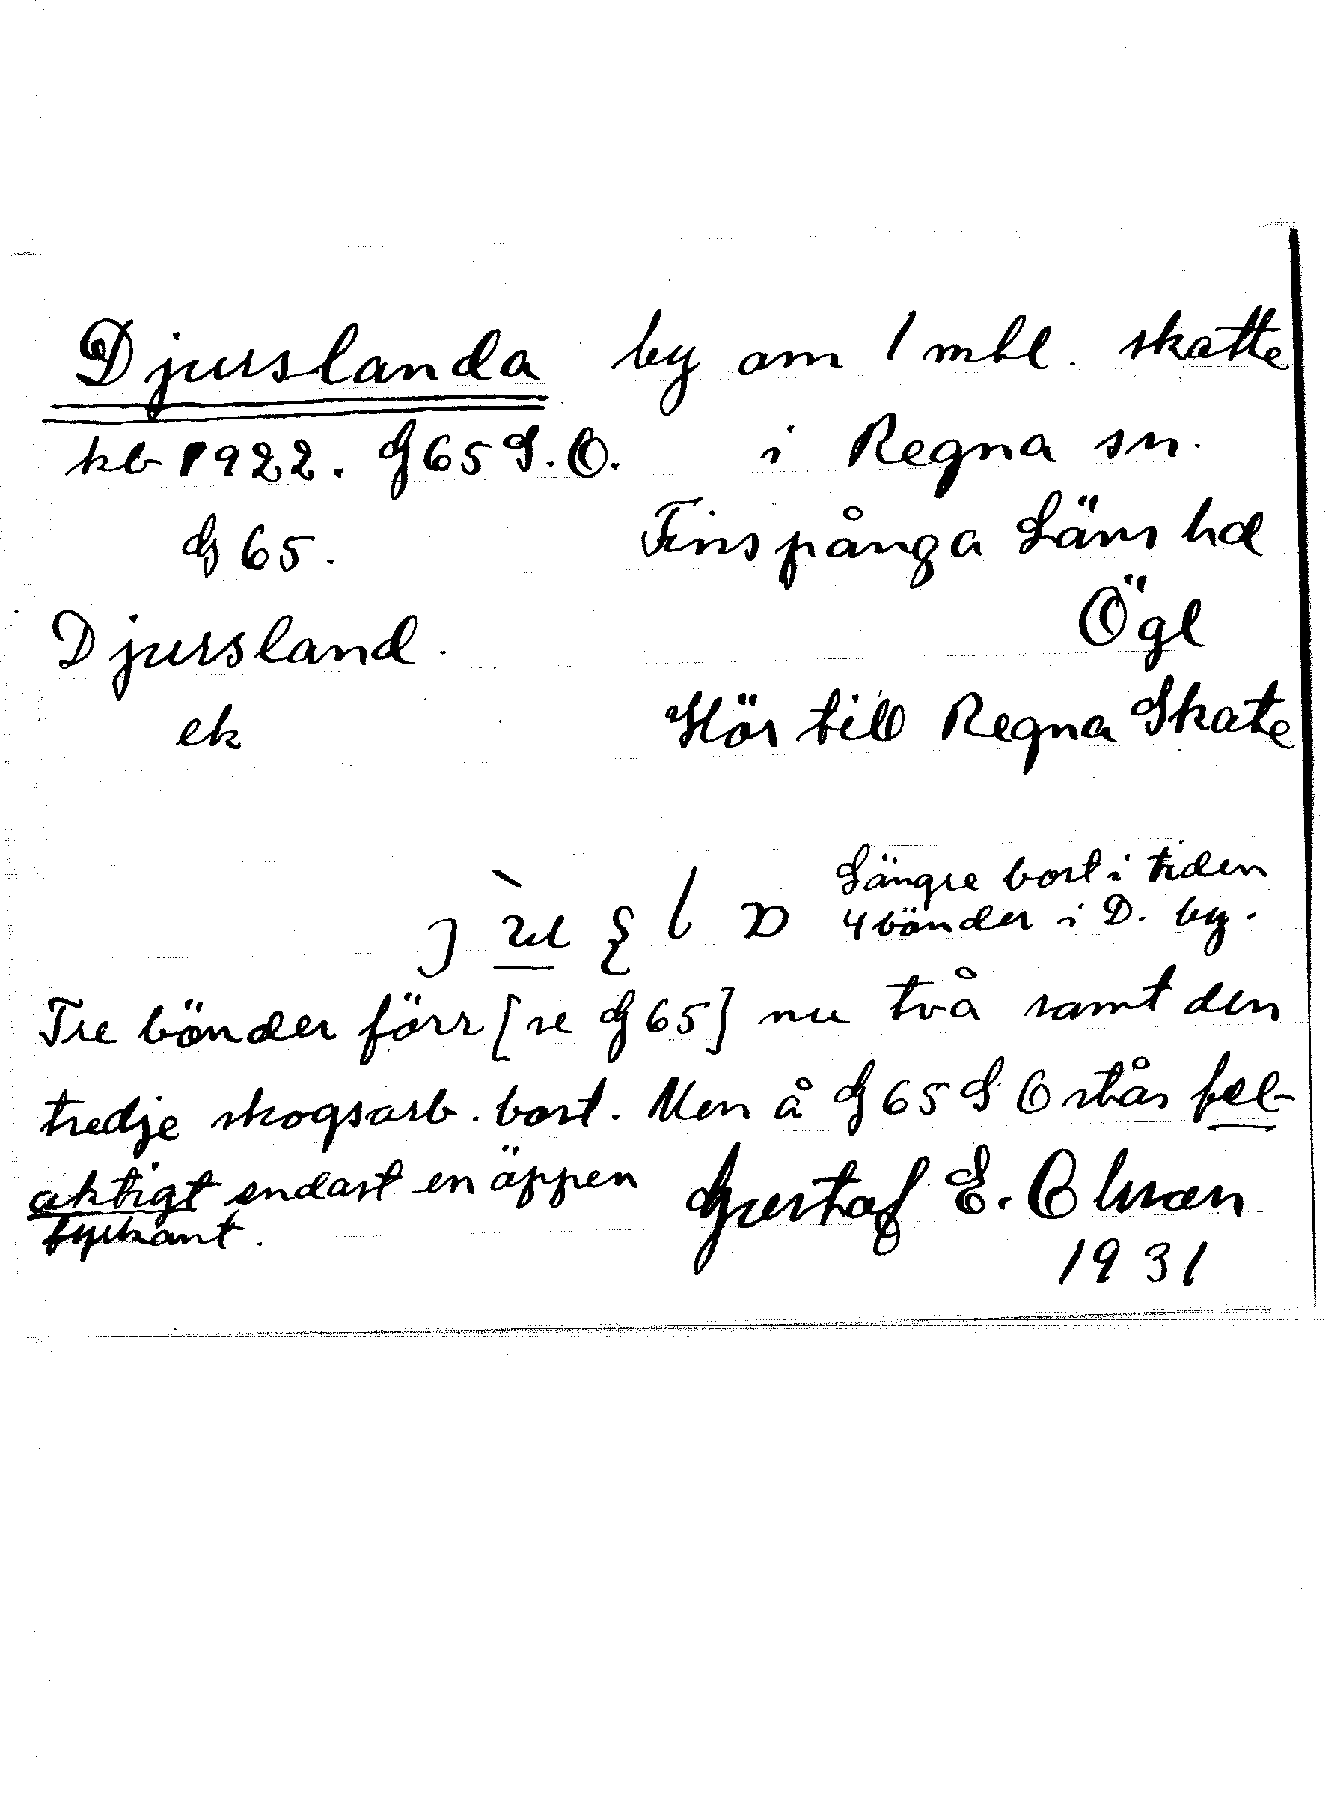 Djurslanda by om 1 mtl. skatte
kb 1922. G65 S.O. i Regna sn.
G 65. Finspånga Läns hd
Djursland. Ögl
ek Hör till Regna Skate
Längre bort i tiden
4 bönder i D. by.
Tre bönder förr [se G65] nu två samt den
tredje skogsarb. bost. Men å G65 S O står fel-
aktigt endast en öppen Gustaf E. Olsson
fyrkant. 1931